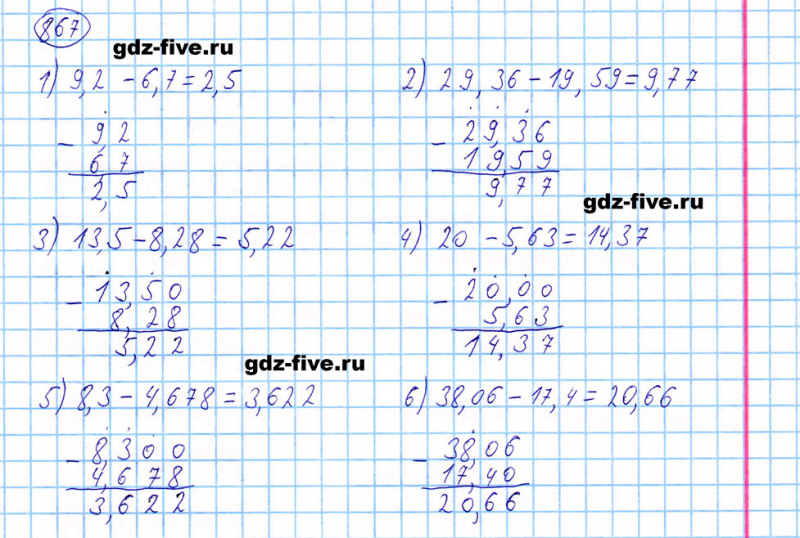 867
gdz-five.ru
1) 9,2 - 6,7 = 2,5
- 9,2
6,7
2,5
2) 29,36 - 19,59 = 9,77
- 29,36
19,59
9,77
gdz-five.ru
3) 13,5 - 8,28 = 5,22
- 13,50
8,28
5,22
4) 20 - 5,63 = 14,37
- 20,00
5,63
14,37
gdz-five.ru
5) 8,3 - 4,678 = 3,622
- 8,300
4,678
3,622
6) 38,06 - 17,4 = 20,66
- 38,06
17,40
20,66